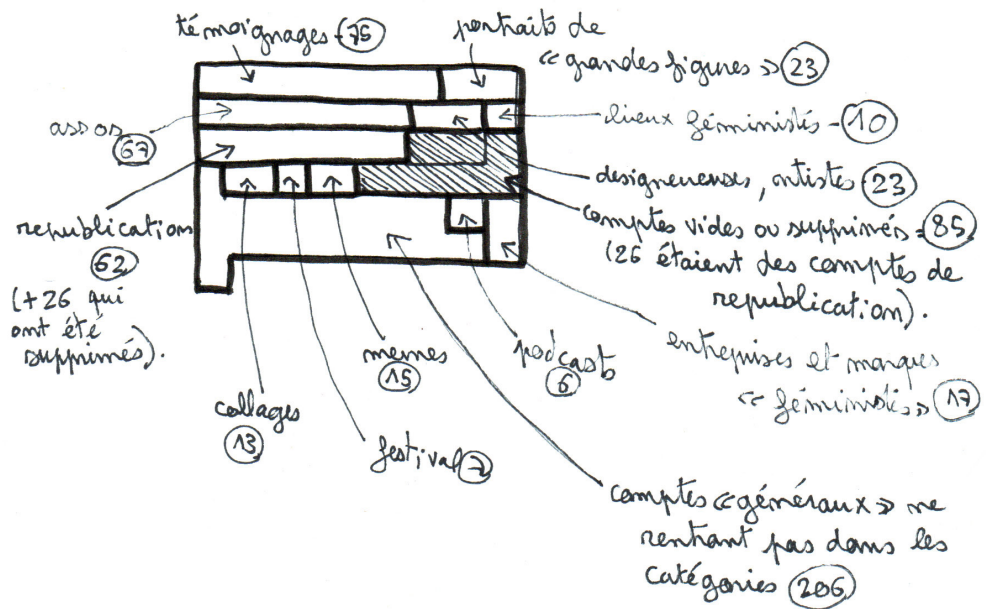 témoignages - 75
portraits de
« grandes figures » 23
assos
67
lieux féministes - 10
designeuses, artistes 23
comptes vides ou supprimés = 85
(26 étaient des comptes de
republication).
republication
62
(+ 26 qui
ont été
supprimés).
memes
15
podcasts
6
entreprises et marques
« féministes » 17
collages
13
festival 7
comptes « généraux » ne
rentrant pas dans les
catégories 206